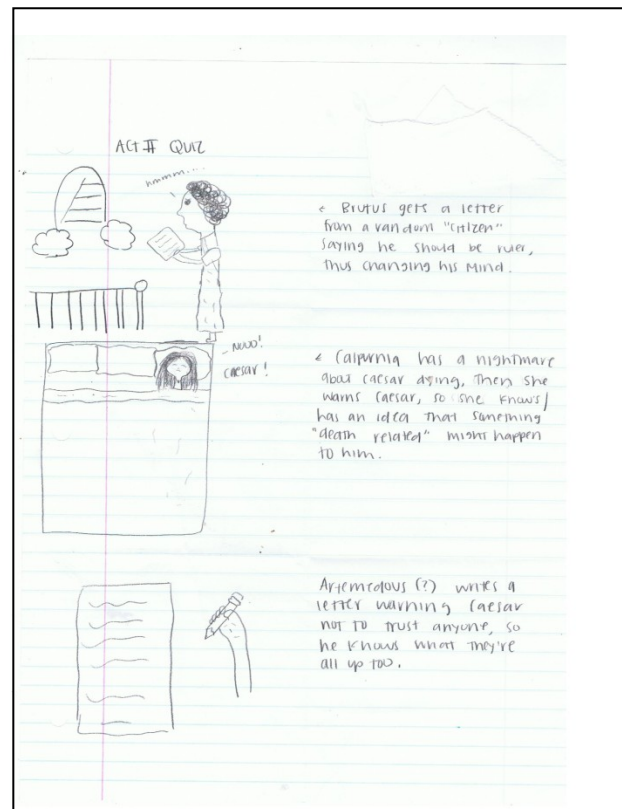 ACT II QUIZ
hmmm....
< Brutus gets a letter
from a random "citizen"
saying he should be ruler,
thus changing his mind.
- Nooo!
caesar!
< Calpurnia has a nightmare
about caesar dying, Then she
warns caesar, so she knows/
has an idea that something
"death related" might happen
to him.
Artemedous (?) writes a
letter warning Caesar
not to trust anyone, so
he knows what they're
all up too.